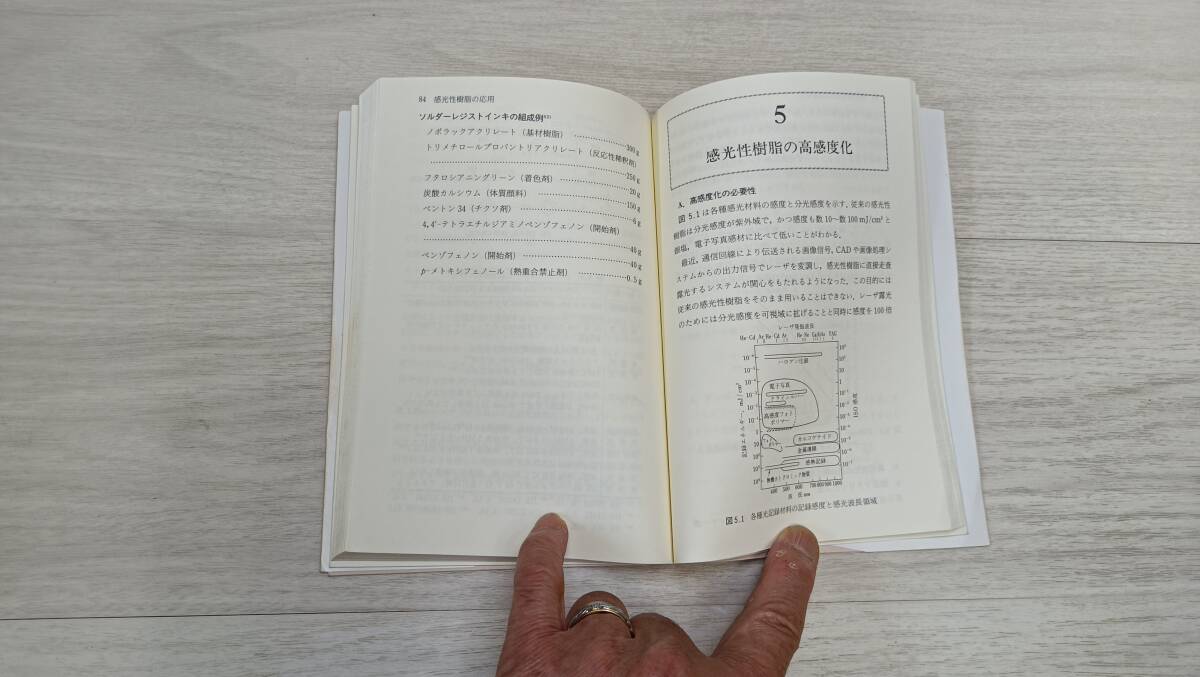 84 感光性樹脂の応用
ソルダーレジストインキの組成例
ノボラックアクリレート（基材樹脂） ……………300 g
トリメチロールプロパントリアクリレート（反応性稀釈剤）
……………250 g
フタロシアニングリーン（着色剤） ……………20 g
炭酸カルシウム（体質顔料） ……………150 g
ベントン34（チクソ剤） ……………6 g
4,4′-テトラエチルジアミノベンゾフェノン（開始剤）
……………40 g
ベンゾフェノン（開始剤） ……………40 g
p-メトキシフェノール（熱重合禁止剤） ……………0.5 g
5
感光性樹脂の高感度化
A. 高感度化の必要性
図5.1は各種感光材料の感度と分光感度を示す．従来の感光性
樹脂は分光感度が紫外域で，かつ感度も数10～数100 mJ/cm²と
銀塩，電子写真感材に比べて低いことがわかる．
最近，通信回線により伝送される画像信号，CADや画像処理シ
ステムからの出力信号でレーザを変調し，感光性樹脂に直接走査
露光するシステムが関心をもたれるようになった．この目的には
従来の感光性樹脂をそのまま用いることはできない．レーザ露光
のためには分光感度を可視域に拡げることと同時に感度を100倍
レーザ発振波長
He-Cd Ar He-Cd Ar He-Ne GaAlAs YAG
ハロゲン化銀
電子写真
高感度フォト
ポリマー
カルコゲナイド
金属薄膜
感熱記録
記録エネルギー，mJ/cm²
ISO 感度
400 500 600 700 800 900 1000
波 長 nm
図5.1 各種光記録材料の記録感度と感光波長領域